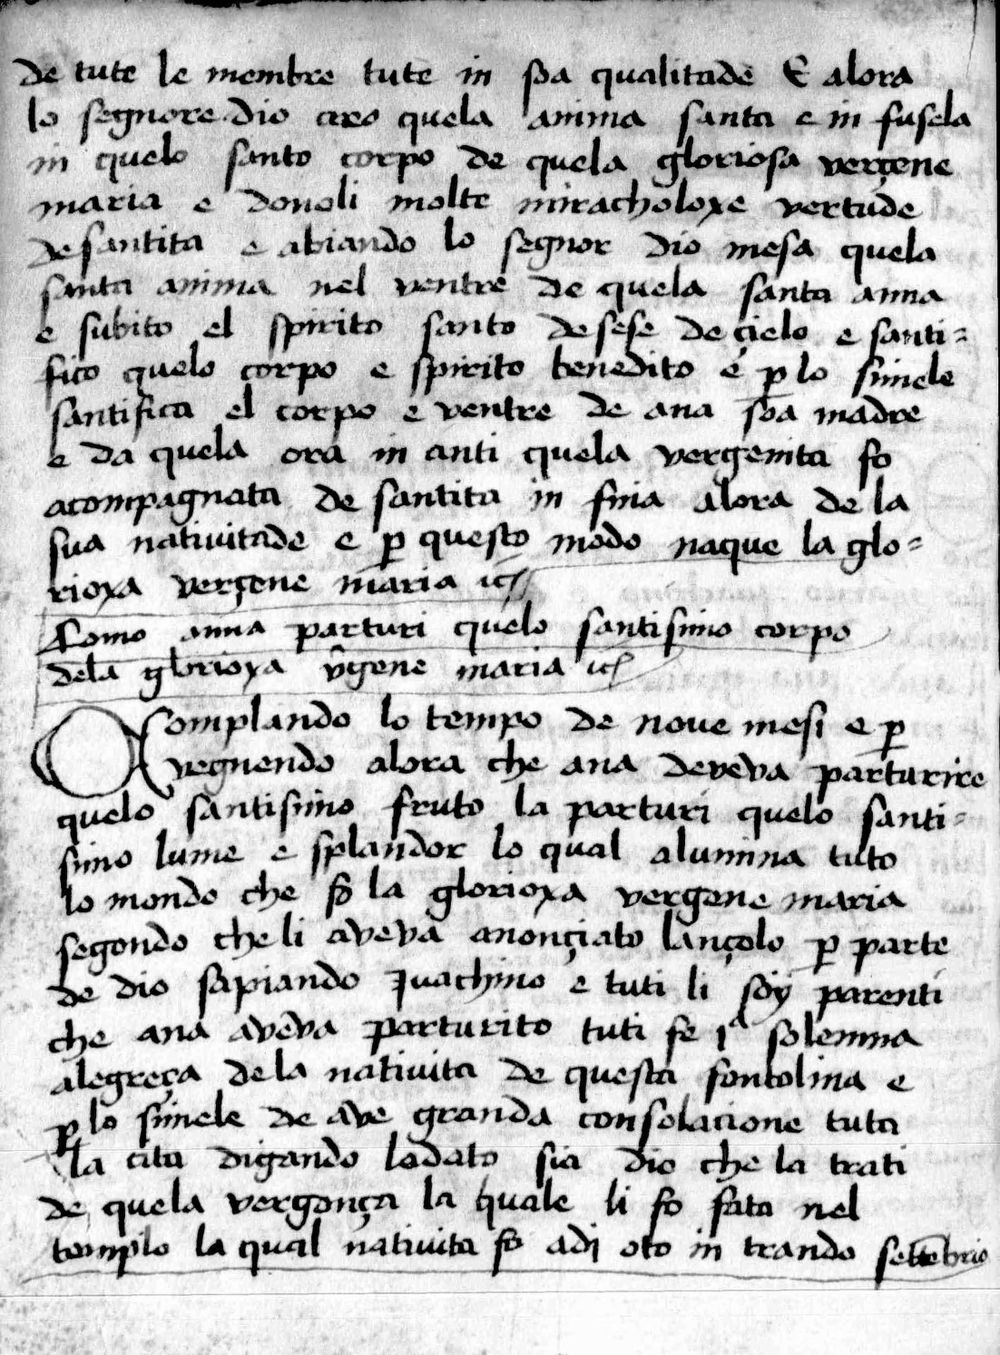 de tute le membre tute in soa qualitade E alora
lo segnore dio creo quela anima santa e in fusela
in quelo santo corpo de quela gloriosa verçene
maria e donoli molte miracholoxe vertude
de santita e abiando lo segnor dio mesa quela
santa anima nel ventre de quela santa anna
e subito el spirito santo desese de çielo e santi=
fico quelo corpo e spirito benedito e p lo simele
santifica el corpo e ventre de ana soa madre
e da quela ora in anti quela vergenita fo
acompagnata de santita in fina alora de la
sua nativitade e p questo modo naque la glo=
rioxa verçene maria
Como anna parturi quelo santisimo corpo
dela glorioxa vgene maria
Complando lo tempo de nove mesi e p
vegnendo alora che ana deveva parturire
quelo santisimo fruto la parturi quelo santi=
simo lume e splandor lo qual alumina tuto
lo mondo che fo la glorioxa vergene maria
segondo che li aveva anonçiato lançolo p parte
de dio sapiando Juachino e tuti li soy parenti
che ana aveva parturito tuti fe 1ª solemna
alegreça dela nativita de questa fontolina e
p lo simele de ave granda consolacione tuta
la cita digando lodato sia dio che la trati
de quela vergonça la quale li fo fata nel
templo la qual nativita fo adi oto in trando settebrio